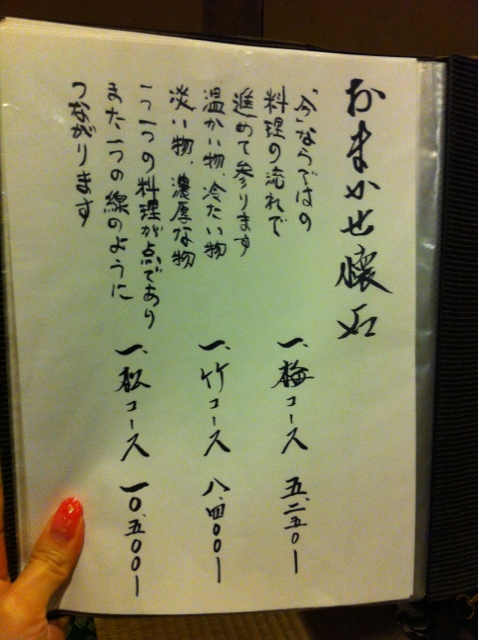 おまかせ懐石
「今」ならではの
料理の流れで
進めて参ります
温かい物、冷たい物
淡い物、濃厚な物
一つ一つの料理が点であり
また一つの線のように
つながります
一、梅コース 五、二五〇ー
一、竹コース 八、四〇〇ー
一、松コース 一〇、五〇〇ー